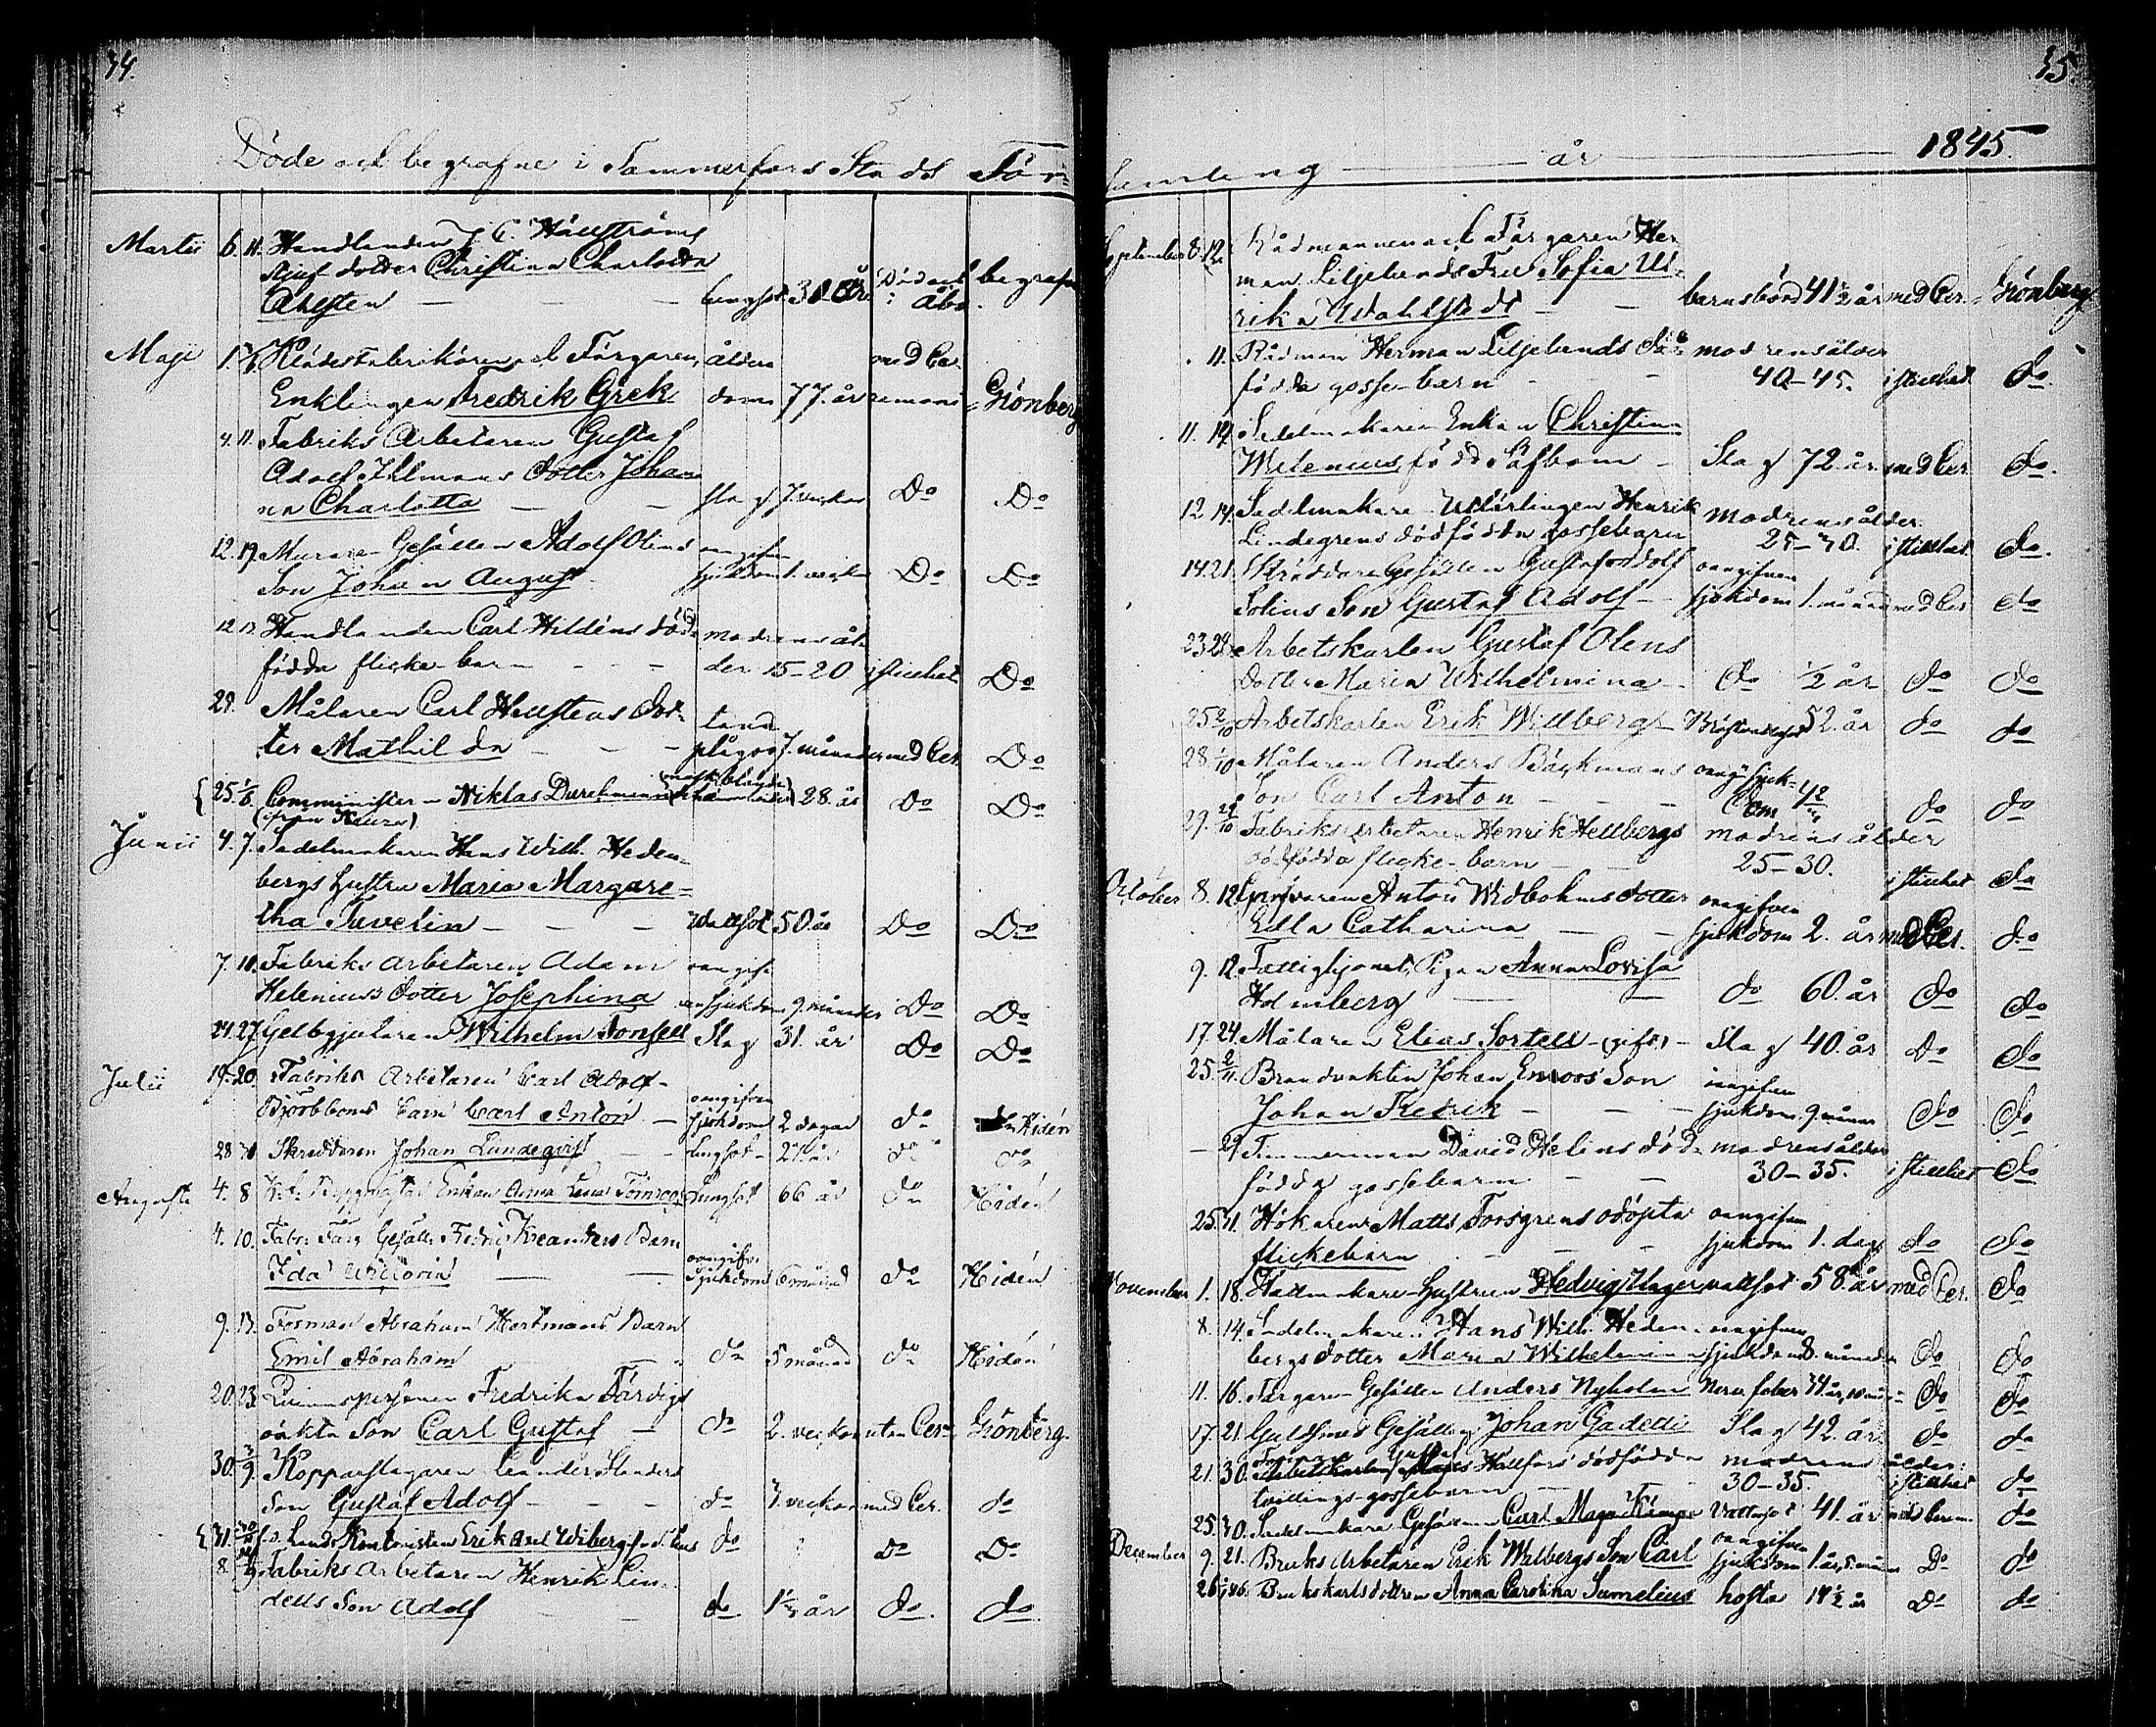 34.
Döde och begrafne i Tammerfors Stads För-
Martii 6. 11. Handlanden J. C. Hällströms
Styfdotter Christina Charlotta
Ahlsten — lungsot 31 år Död och begrafven
i Åbo.
Maji 1. Klädesfabrikören och Färgaren, ålder- med Cer-
Enklingen Fredrik Grek dom 77. år remoni Grönberg
4. 11. Fabriks Arbetaren Gustaf
Adolf Ihlmans dotter Johan-
na Charlotta — slag 7 veckor Do Do
12. 19. Murare Gesällen Adolf Olins oangifven
Son Johan August sjukdom 1. vecka Do Do
12 13 Handlanden Carl Hildéns död- modrens ål-
födda flickebarn — der 15–20 i stillhet Do
28. Målaren Carl Hellstens dot- tand
ter Mathilda — plågor 7. månader med Cer. Do
25. 1/6. Comminister Niklas Durchman 28. år Do Do
(från Kauro)
Junii 4. 7. Sadelmakaren Hans Wilh. Heden-
bergs hustru Maria Margare-
tha Tuvelin — Wattsot 50 år Do Do
7. 10. Fabriks arbetaren Adam oangif-
Helenius's dotter Josephina ven sjukdom 9. månader Do Do
24. 27. Gelbgjutaren Wilhelm Tonsell Slag 31. år Do Do
Julii 19. 20. Fabriks Arbetaren Carl Adolf oangifven
Björkboms barn Carl Anton — sjukdom 2 dagar do Hidén
28 30 Skräddaren Johan Lundeqvist Lungsot 27 år do do
Augusti 4. 8 Enkan Anna Lena Lungsot 66 år do Hidén
4. 10. Fabr. Färg Gesälls Fredric Kreanders Barn oangifv.
Ida Victoria — Sjukdom 6 månad do Hidén
9. 13. Forsman Abraham Hartmans Barn
Emil Abraham do 5 månad do Hidén
20. 23. Qvinnspersonen Fredrika Färdigs
oäkta Son Carl Gustaf — do 2. veckor utan Cer. Grönberg.
30. 7/9. Kopparslagaren Leander Standers
Son Gustaf Adolf — do 3. veckor med Cer. do
31. Lands Kontoristen Erik Axel Wiberg do ? do Do
8 Fabriks arbetaren Henrik Lin-
dells Son Adolf do 1½ år do. do.
35.
samling — år — 1845.
September 8. 12. Rådmannen och Färgaren Her-
man Liljelunds Fru Sofia Ul-
rika Wahlstedt — barnsbörd 41½ år med Cer. Grönberg
11. Rådman Herman Liljelunds död- modrens ålder
födda gosse-barn — 40–45. i stillhet do.
11. 14. Sadelmakare Enkan Christina
Welenius född Säfbom — Slag 72. år med Cer. do.
12 14. Sadelmakare-Utlärlingen Henrik modrens ålder
Lindegrens dödfödda gossebarn 25–30. i stillhet do.
14. 21. Skräddare Gesällen Gustaf Adolf oangifven
Solins Son Gustaf Adolf — sjukdom 1. månad med Cer do
23. 28. Arbetskarlen Gustaf Olens
dotter Maria Wilhelmina — do ½ år do do
25 2/10 Arbetskarlen Erik Willberg — 52. år do do
28. 1/10 Målaren Anders Bäckmans oangif. sjuk-
Son Carl Anton — dom do do
29. Fabriks arbetaren Henrik Hellbergs modrens ålder
dödfödda flicke-barn — 25–30. i stillhet do
October 8. 12. Garfvaren Anton Widbohms dotter oangifven
Edla Catharina — sjukdom 2. år med Cer. do
9. 12. Fattighjonet, Pigan Anna Lovisa
Holmberg — do 60. år do do
17. 24. Målaren Elias Sortell (gift) — Slag 40. år Do do
25. 2/11. Brandvakten Johan Enroos' Son oangifven
Johan Fredrik — sjukdom 9. månad do do
— 29. Timmerman David Helins död- modrens ålder
födda gossebarn — 30–35. i stillhet do
25. 31. Hökaren Matts Forsgrens odöpta oangifven
flickebarn — sjukdom 1. dag do do
November 1. 18. Hattmakare-Hustrun Hedvig Hager vattsot 58. år med Cer. do
8. 14. Sadelmakaren Hans Wilh. Heden- oangifven
bergs dotter Maria Wilhelmina sjukdom 8. månader do do
11. 16. Färgare Gesällen Anders Nyholm Nerv. feber 34 år, do do
17. 21. Guldsmeds Gesällen Johan Gadelli Slag 42. år do do
21. 30. Gustaf Hallfors' dödfödda modrens ålder:
tvillings-gossebarn 30–35. i stillhet do
25. 30. Sadelmakare Gesällen Carl Magn. Kämpe Vattusot 41. år med cerem. do
December 9. 21. Bruks Arbetaren Erik Wilbergs Son Carl oangifven sjukdom 1. år, 5. mån Do do
26. Brukskarls dottren Anna Carolina Sumelius hosta 14½ år Do do